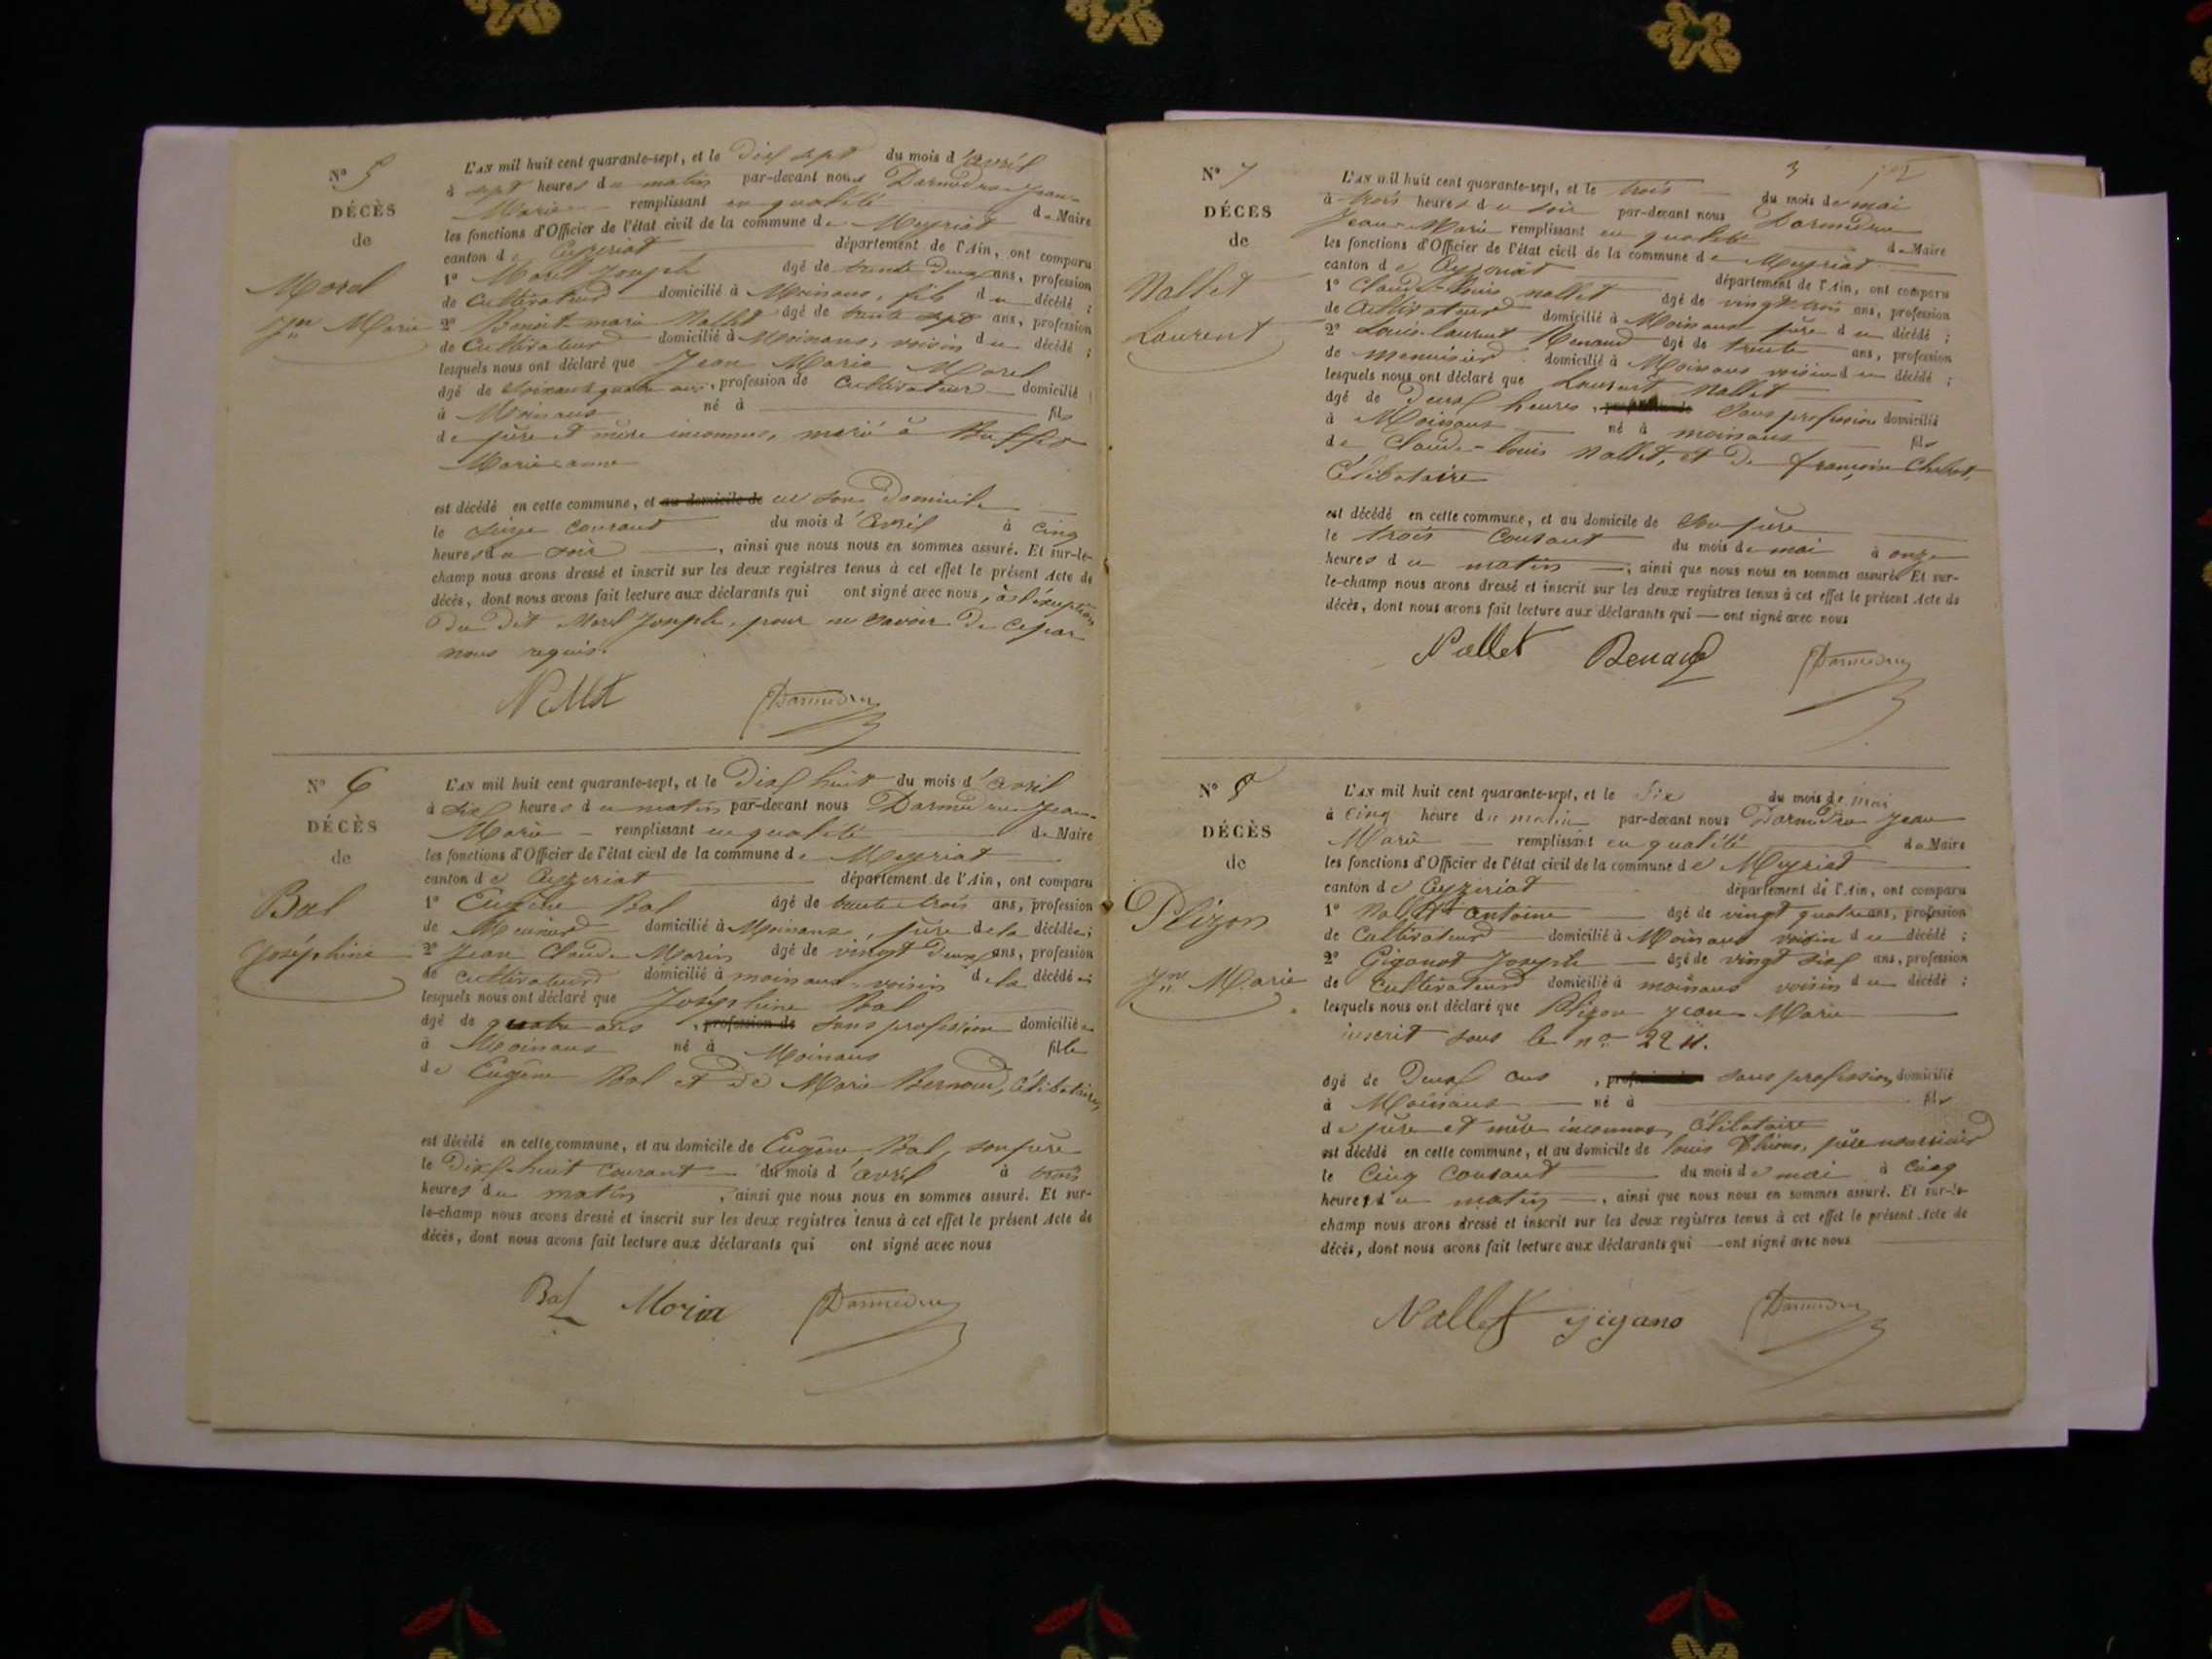 N° 5
DÉCÈS
de
Morel
Jn Marie
L'AN mil huit cent quarante-sept, et le dix sept du mois d'avril
à sept heures du matin par-devant nous Darmedru Jean-
Marie remplissant en qualité de Maire
les fonctions d'Officier de l'état civil de la commune de Meyriat
canton de Ceyzeriat département de l'Ain, ont comparu
1° Morel Joseph âgé de trente deux ans, profession
de Cultivateur domicilié à Moinans, fils du décédé ;
2° Benoit marie Nallet âgé de trente sept ans, profession
de Cultivateur domicilié à Moinans, voisin du décédé ;
lesquels nous ont déclaré que Jean Marie Morel
âgé de soixante quatre ans, profession de Cultivateur domicilié
à Moinans né à fils
de père et mère inconnus, marié à Buffet
Marieanne
est décédé en cette commune, et au domicile de en son domicile
le seize courant du mois d'avril à cinq
heures du soir, ainsi que nous nous en sommes assuré. Et sur-le-
champ nous avons dressé et inscrit sur les deux registres tenus à cet effet le présent Acte de
décès, dont nous avons fait lecture aux déclarants qui ont signé avec nous, à l'exception
du dit Morel Joseph, pour ne savoir de ce par
nous requis.
Nallet Darmedru
N° 6
DÉCÈS
de
Bal
Joséphine
L'AN mil huit cent quarante-sept, et le Dix huit du mois d'avril
à dix heures du matin par-devant nous Darmedru Jean-
Marie remplissant en qualité de Maire
les fonctions d'Officier de l'état civil de la commune de Meyriat
canton de Ceyzeriat département de l'Ain, ont comparu
1° Eugène Bal âgé de trente trois ans, profession
de Meunier domicilié à Moinans, père de la décédée ;
2° Jean Claude Morin âgé de vingt deux ans, profession
de cultivateur domicilié à moinans voisin de la décédée
lesquels nous ont déclaré que Joséphine Bal
âgé de quatre ans, profession de sans profession domiciliée
à Moinans né à Moinans fille
de Eugène Bal et de Marie Bernoud, Célibataire,
est décédé en cette commune, et au domicile de Eugène Bal, son père
le Dix-huit courant du mois d'avril à trois
heures du matin, ainsi que nous nous en sommes assuré. Et sur-
le-champ nous avons dressé et inscrit sur les deux registres tenus à cet effet le présent Acte de
décès, dont nous avons fait lecture aux déclarants qui ont signé avec nous
Bal Morin Darmedru
3
N° 7
DÉCÈS
de
Nallet
Laurent
L'AN mil huit cent quarante-sept, et le trois du mois de mai
à trois heures du soir par-devant nous Darmedru
Jean-Marie remplissant en qualité de Maire
les fonctions d'Officier de l'état civil de la commune de Meyriat
canton de Ceyzeriat département de l'Ain, ont comparu
1° Claude-Louis Nallet âgé de vingt-trois ans, profession
de Cultivateur domicilié à Moinans père du décédé ;
2° Louis-Laurent Renaud âgé de trente ans, profession
de menuisier domicilié à Moinans voisin du décédé ;
lesquels nous ont déclaré que Laurent Nallet
âgé de Deux heures, sans profession domicilié
à Moinans né à moinans fils
de Claude-Louis Nallet, et de françoise
Célibataire
est décédé en cette commune, et au domicile de son père
le trois courant du mois de mai à onze
heures du matin, ainsi que nous nous en sommes assuré. Et sur-
le-champ nous avons dressé et inscrit sur les deux registres tenus à cet effet le présent Acte de
décès, dont nous avons fait lecture aux déclarants qui ont signé avec nous
Nallet Renaud Darmedru
N° 8
DÉCÈS
de
Plizon
Jn Marie
L'AN mil huit cent quarante-sept, et le Six du mois de mai
à Cinq heure du matin par-devant nous Darmedru Jean
Marie remplissant en qualité de Maire
les fonctions d'Officier de l'état civil de la commune de Meyriat
canton de Ceyzeriat département de l'Ain, ont comparu
1° Nallet Antoine âgé de vingt quatre ans, profession
de Cultivateur domicilié à Moinans voisin du décédé ;
2° Gigonot Joseph âgé de vingt six ans, profession
de Cultivateur domicilié à moinans voisin du décédé ;
lesquels nous ont déclaré que Plizon Jean Marie
inscrit sous le n°
âgé de Deux ans, sans profession, domicilié
à Moinans né à fils
de père et mère inconnus, Célibataire
est décédé en cette commune, et au domicile de Louis père nourricier
le Cinq courant du mois de mai à Cinq
heures du matin, ainsi que nous nous en sommes assuré. Et sur-le-
champ nous avons dressé et inscrit sur les deux registres tenus à cet effet le présent Acte de
décès, dont nous avons fait lecture aux déclarants qui ont signé avec nous
Nallet gigano Darmedru